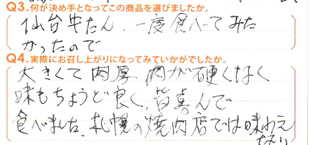 Q3.何が決め手となってこの商品を選びましたか。
仙台牛たん、一度食べてみた
かったので
Q4.実際にお召し上がりになってみていかがでしたか。
大きくて肉厚、肉が硬くなく
味もちょうど良く、皆喜んで
食べました。札幌の焼肉店では味わえ
ない